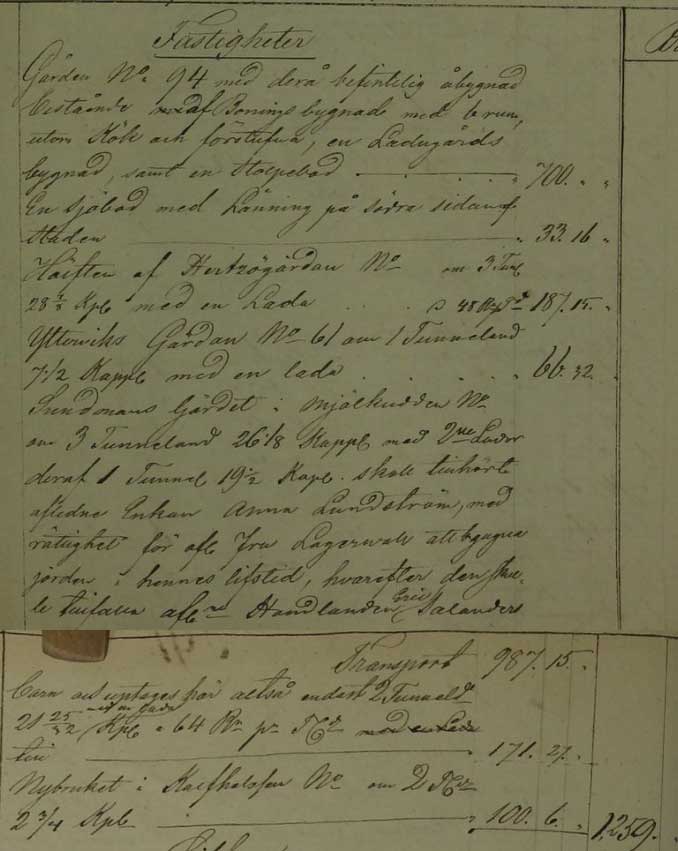 Fastigheter
Gården No 94 med derå befintelig åbygnad
bestående af Bonings bygnad med 6 rum,
utom Kök och förstufva, en Ladugårds
bygnad, samt en Stolpebod 700. "
En sjöbod med Länning på södra sidan af
staden 33. 16 "
Hälften af Hertzögärdan No om 3 Tunl
28 7/8 Kpl med en Lada 187. 15. "
Ytterwiks Gärdan No 61 om 1 Tunneland
7 1/2 Kappl med en lada 66. 32.
Sundmans Gärdet i Mjölkudden No
om 3 Tunneland 26 1/8 Kappl med 2ne Lador
deraf 1 Tunnel 19 1/2 Kapl. skall tillhört
afledne Enkan Anna Lundström, med
rätighet för afl Fru Lagerwall att begagna
jorden i hennes lifstid, hvarefter den skul-
le tillfalla aflne Handlanden Eric Salanders
Transport 987. 15. "
Barn och uptages här altså endast 2 Tunneld
med en Lada
21 25/32 Kpl a 64 Rr pr med en Lada
till 171. 27. "
Nybruket i No om 2
2 3/4 Kpl 100. 6. " 1,259. "